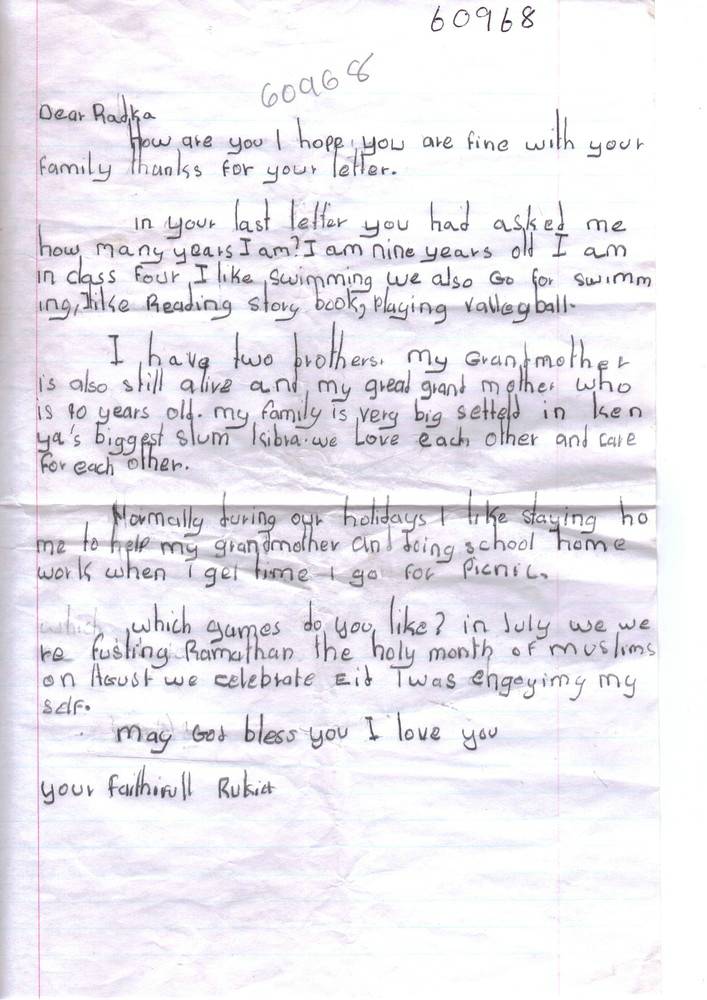 60968
60968
Dear Radka
How are you I hope you are fine with your
family thanks for your letter.
in your last letter you had asked me
how many years I am? I am nine years old I am
in class four I like swimming we also Go for swimm
ing, I like Reading story book, playing valleyball.
I have two brothers. my Grandmother
is also still alive and my great grand mother who
is 90 years old. my family is very big setteld in ken
ya's biggest slum kibra. we Love each other and care
for each other.
Normally during our holidays I like staying ho
me to help my grandmother and doing school home
work when i get time I go for Picnic.
which which games do you like? in July we we
re fusting Ramathan the holy month of muslims
on Agust we celebrate Eid I was engoyimg my
self.
may God bless you I love you
your faithfull Rukia